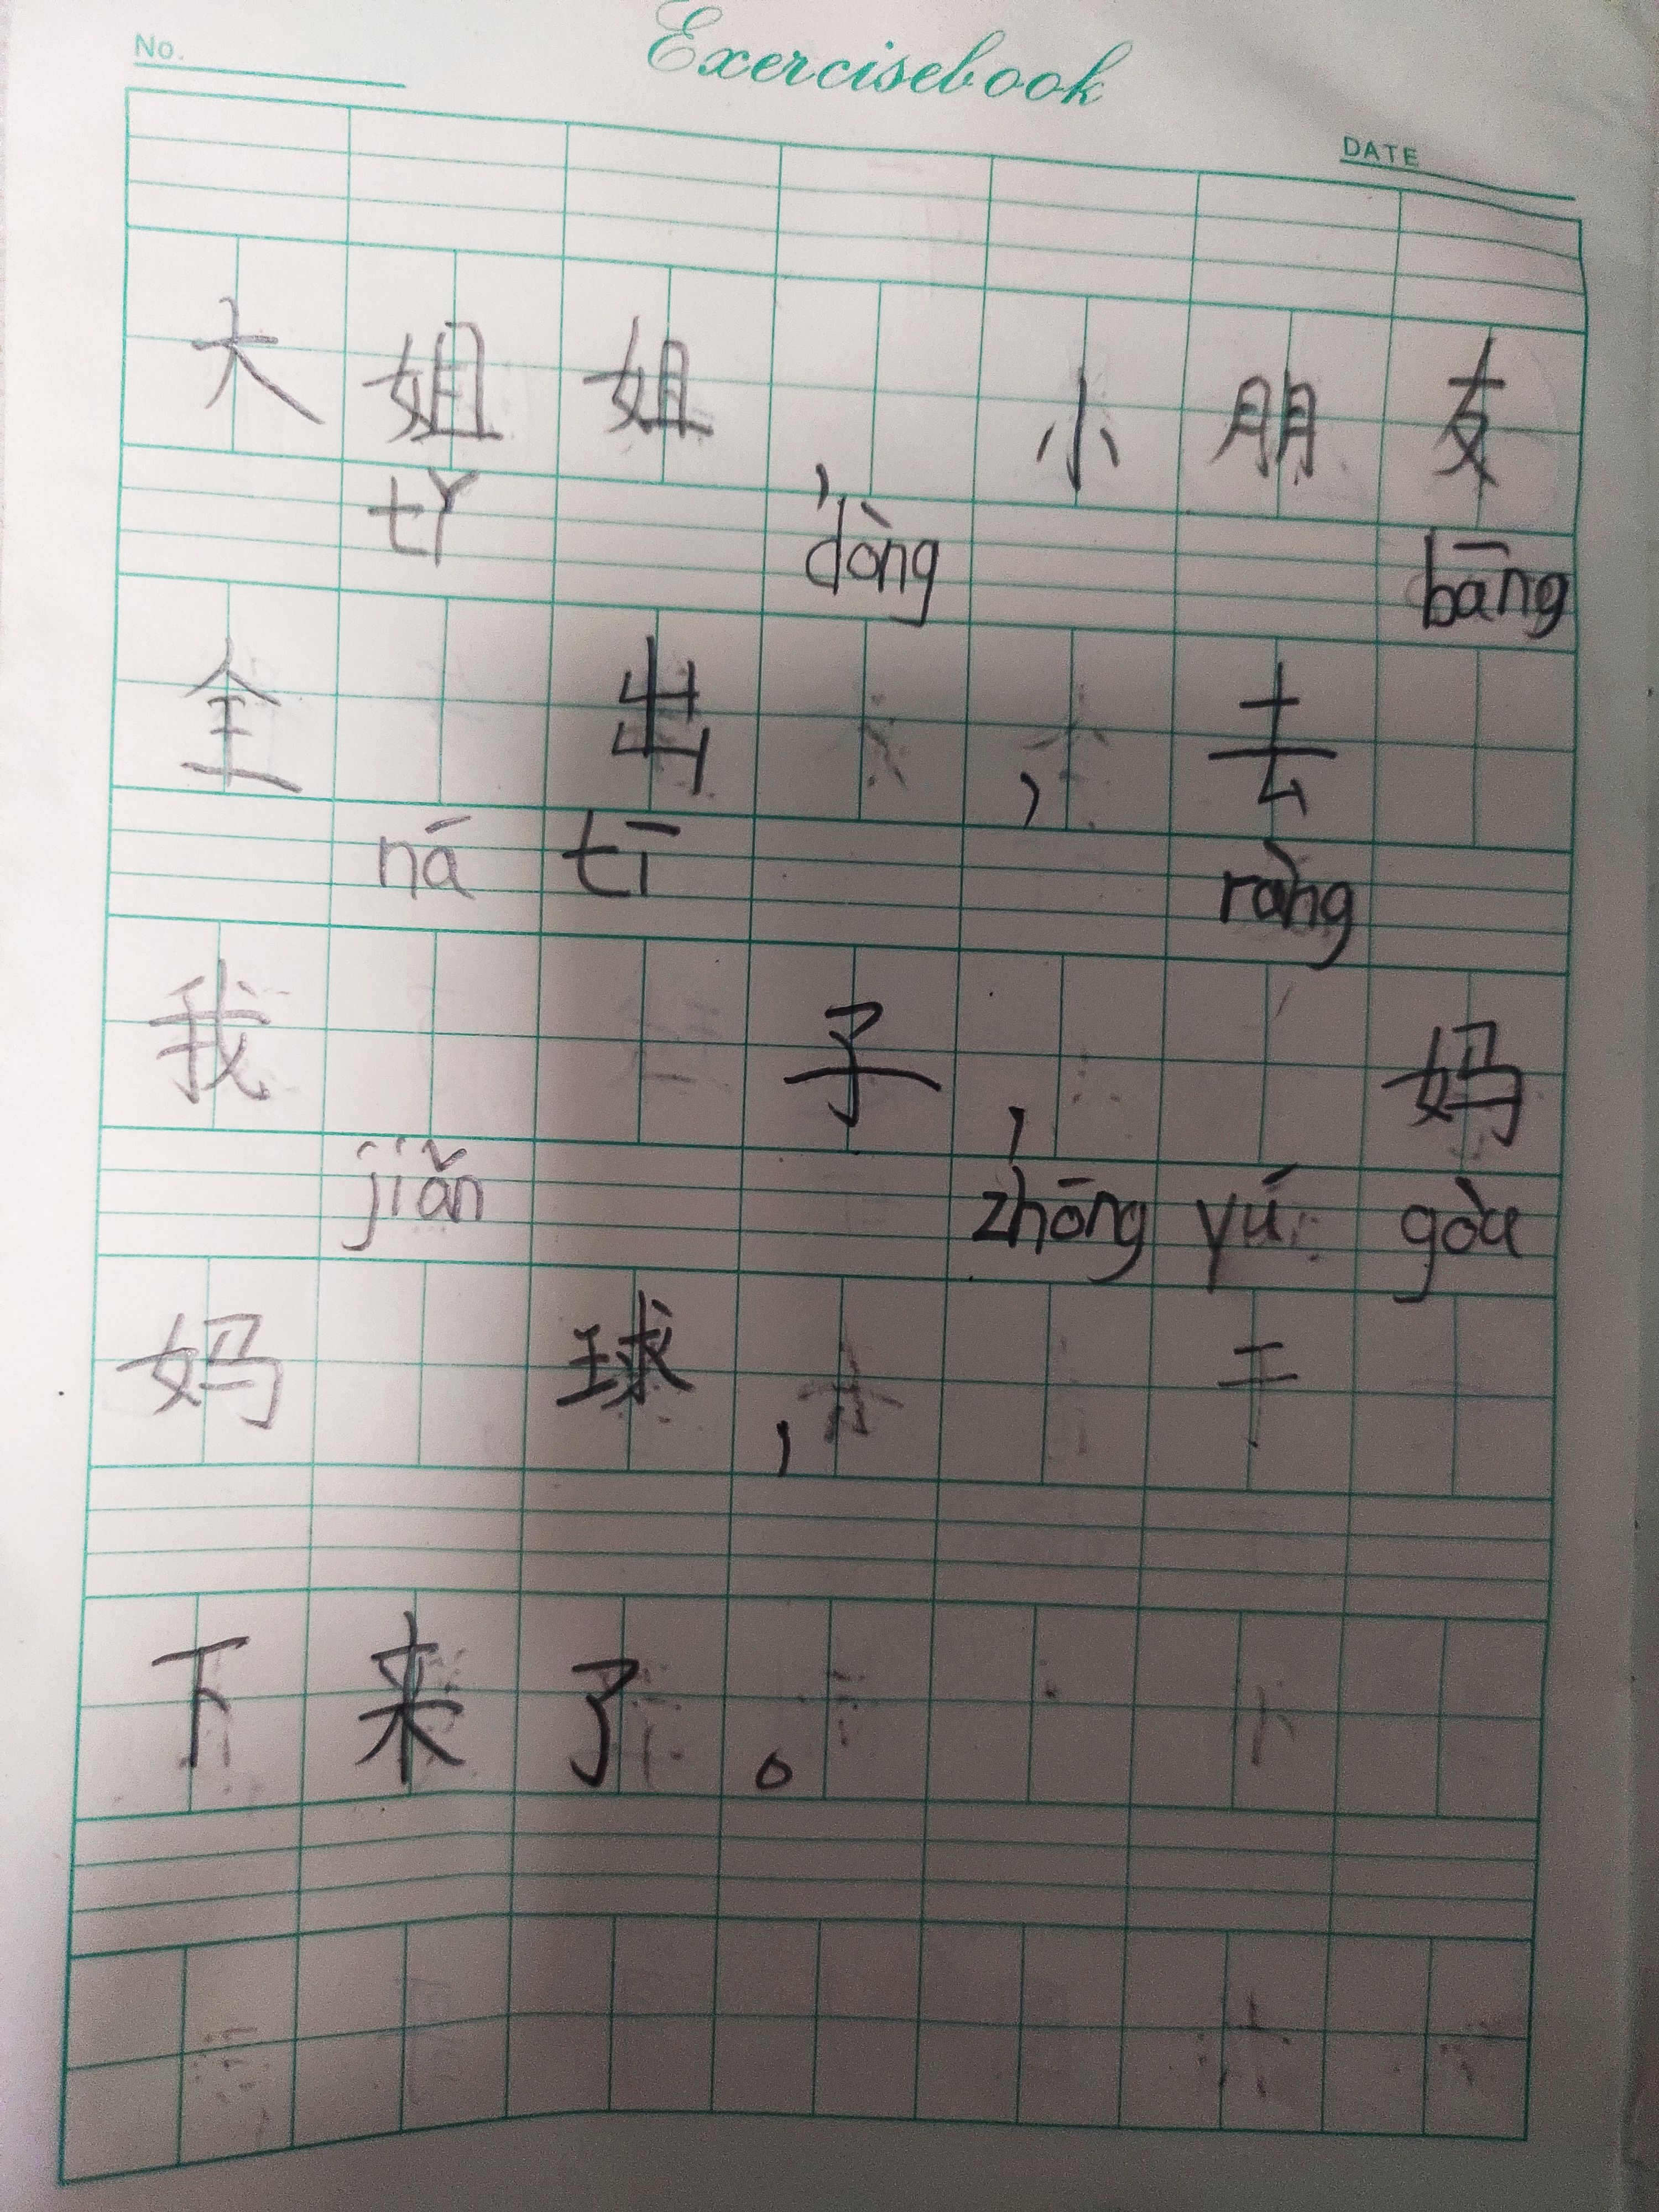 No. Exercisebook
DATE
大姐姐,小朋友
tǐ dòng bāng
全出,去
ná tī ràng
我子,妈
jiǎn zhōng yú gòu
妈球,于
下来了。